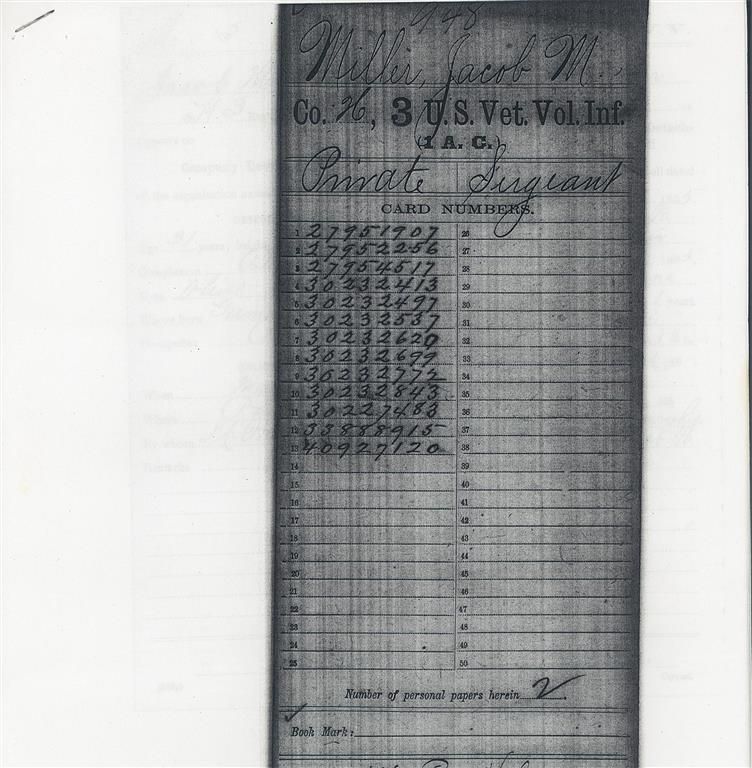 948
Miller, Jacob M.
Co. H, 3 U.S. Vet. Vol. Inf.
(1 A. C.)
Private Sergeant
CARD NUMBERS.
1 27951907 26
2 27952256 27
3 27954517 28
4 30232413 29
5 30232497 30
6 30232537 31
7 30232620 32
8 30232699 33
9 30232772 34
10 30232843 35
11 30227483 36
12 33888915 37
13 40927120 38
14 39
15 40
16 41
17 42
18 43
19 44
20 45
21 46
22 47
23 48
24 49
25 50
Number of personal papers herein 2
Book Mark: